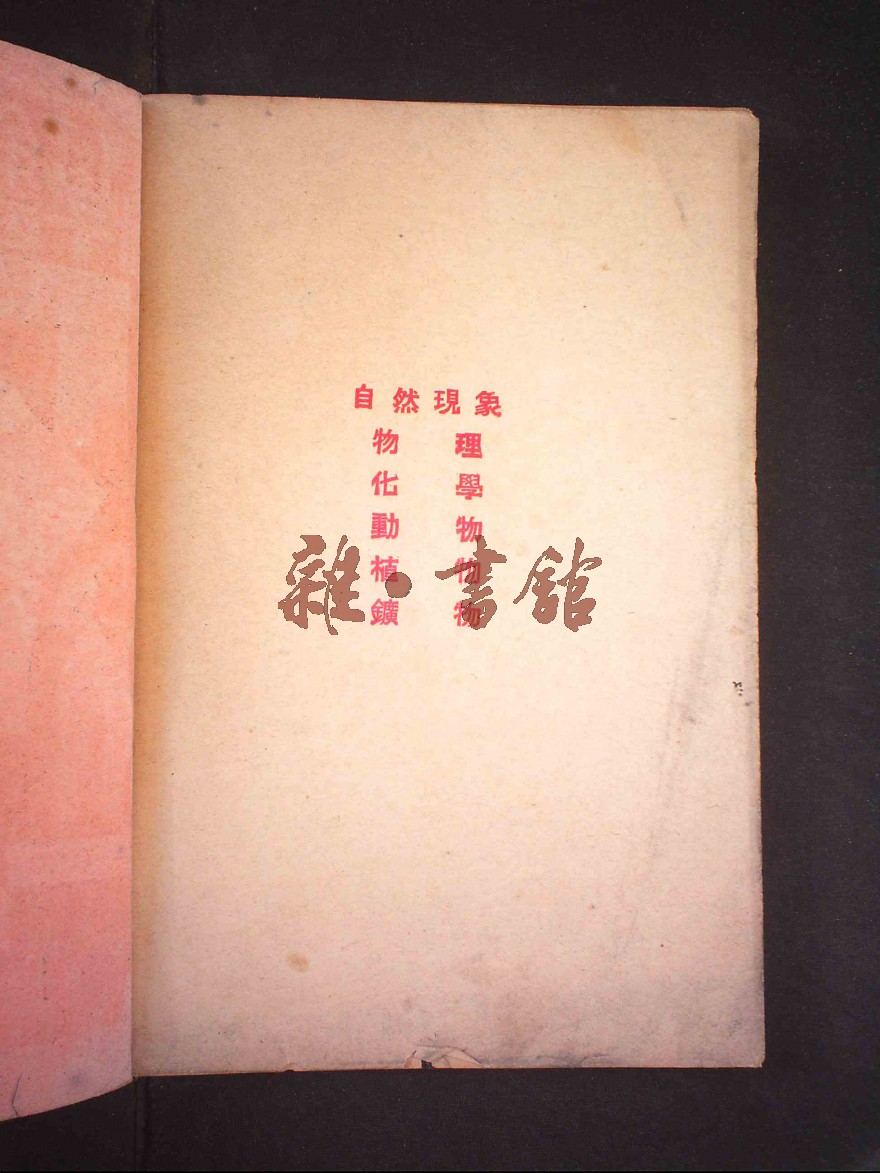 自然現象
物理
化學
動物
植物
鑛物
雜·書館